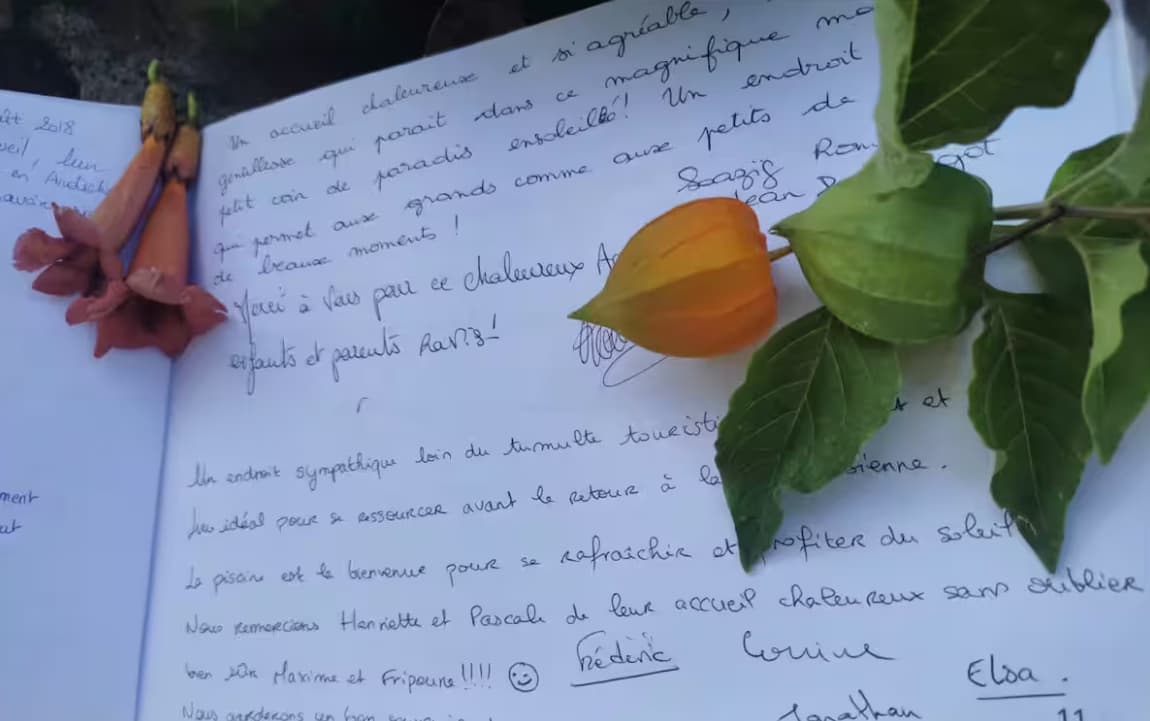 2018
en Ardèch
Un accueil chaleureuse et si agréable,
gentillesse qui parait dans ce magnifique
petit coin de paradis ensoleillé! Un endroit
qui permet aux grands comme aux petits de
de beaux moments !
Merci à Vous pour ce chaleureux
enfants et parents Ravis!
Un endroit sympathique loin du tumulte touristi et
lieu idéal pour se ressourcer avant le retour à la ienne.
La piscine est la bienvenue pour se rafraîchir et profiter du soleil
Nous remercions Henriette et Pascale de leur accueil chaleureux sans oublier
bien sûr Maxime et Fripoune!!!! ☺ Frédéric Corinne Elsa.
Nous garderons un bon Jonathan 11
ment